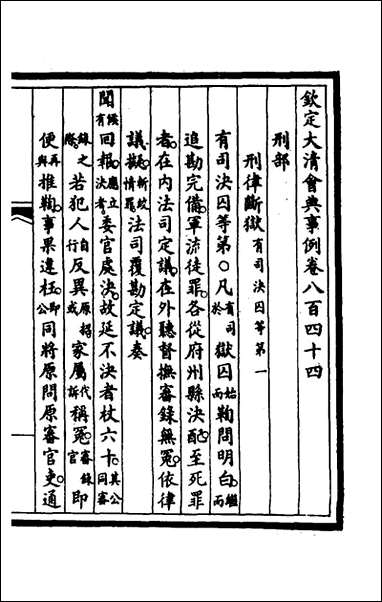 欽定大清會典事例卷八百四十四
刑部
刑律斷獄有司決囚等第一
有司決囚等第○凡有司於獄囚始而鞫問明白繼而
追勘完備軍流徒罪各從府州縣決配至死罪
者在內法司定議在外聽督撫審錄無冤依律
議斷擬故情罪法司覆勘定議奏
聞候有回報應立決者委官處決故延不決者杖六十其公同審
錄之際若犯人自行反異原招或家屬代訴稱冤審錄官即
便再與推鞫事果違枉即公同將原問原審官吏通